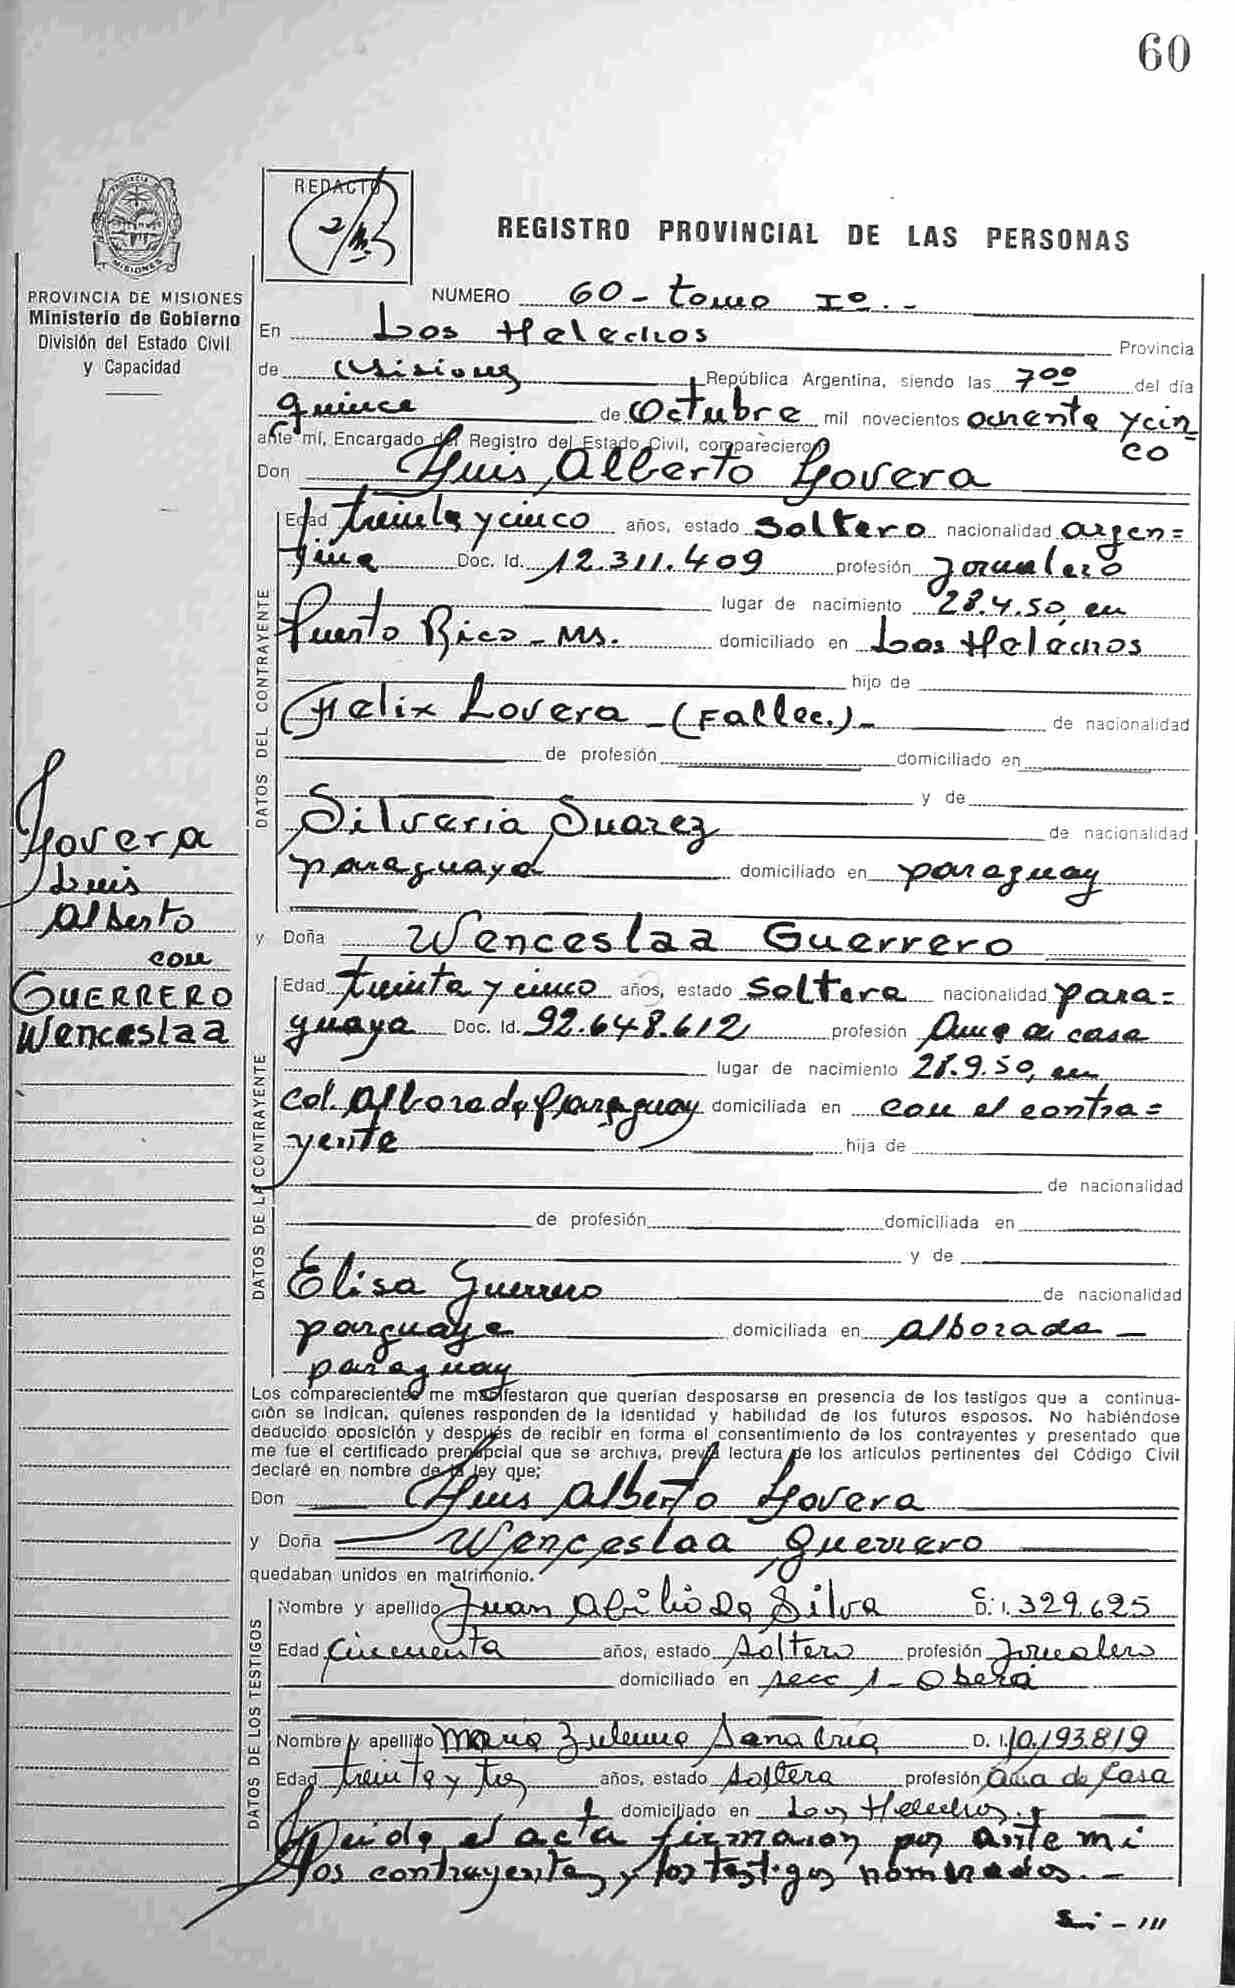 60
PROVINCIA
MISIONES
REDACTO
REGISTRO PROVINCIAL DE LAS PERSONAS
PROVINCIA DE MISIONES
Ministerio de Gobierno
División del Estado Civil
y Capacidad
NUMERO 60 - tomo Iº. -
En Los Helechos Provincia
de Misiones República Argentina, siendo las 7 ºº del día
quince de Octubre mil novecientos ochenta y cin
co
ante mí, Encargado del Registro del Estado Civil, comparecieron
Don Luis Alberto Lovera
DATOS DEL CONTRAYENTE
Edad treinta y cinco años, estado Soltero nacionalidad argen=
tina Doc. Id. 12.311.409 profesión Jornalero
lugar de nacimiento 28.4.50 en
Puerto Rico - Ms. domiciliado en Los Helechos
hijo de
Felix Lovera - (Fallec.) - de nacionalidad
de profesión domiciliado en
y de
Silveria Suarez de nacionalidad
paraguaya domiciliado en paraguay
Lovera
Luis
Alberto
con
GUERRERO
Wenceslaa
y Doña Wenceslaa Guerrero
DATOS DE LA CONTRAYENTE
Edad treinta y cinco años, estado Soltera nacionalidad para=
guaya Doc. Id. 92.648.612 profesión Ama de casa
lugar de nacimiento 28.9.50, en
Col. Alborada Paraguay domiciliada en con el contra=
yente hija de
de nacionalidad
de profesión domiciliada en
y de
Elisa Guerrero de nacionalidad
paraguaya domiciliada en alborada -
paraguay
Los comparecientes me manifestaron que querían desposarse en presencia de los testigos que a continua-
ción se indican, quienes responden de la identidad y habilidad de los futuros esposos. No habiéndose
deducido oposición y después de recibir en forma el consentimiento de los contrayentes y presentado que
me fue el certificado prenupcial que se archiva, previa lectura de los artículos pertinentes del Código Civil
declaré en nombre de la ley que;
Don Luis Alberto Lovera
y Doña Wenceslaa Guerrero
quedaban unidos en matrimonio.
DATOS DE LOS TESTIGOS
Nombre y apellido Juan Abilio Da Silva C. I. 329.625
Edad Cincuenta años, estado Soltero profesión Jornalero
domiciliado en secc 1 - Oberá
Nombre y apellido Maria Zulema Sanabria D. I. 10.193.819
Edad treinta y tres años, estado Soltera profesión Ama de Casa
domiciliado en Los Helechos.
Leida el acta firmaron por ante mi
los contrayentes y los testigos nombrados. -